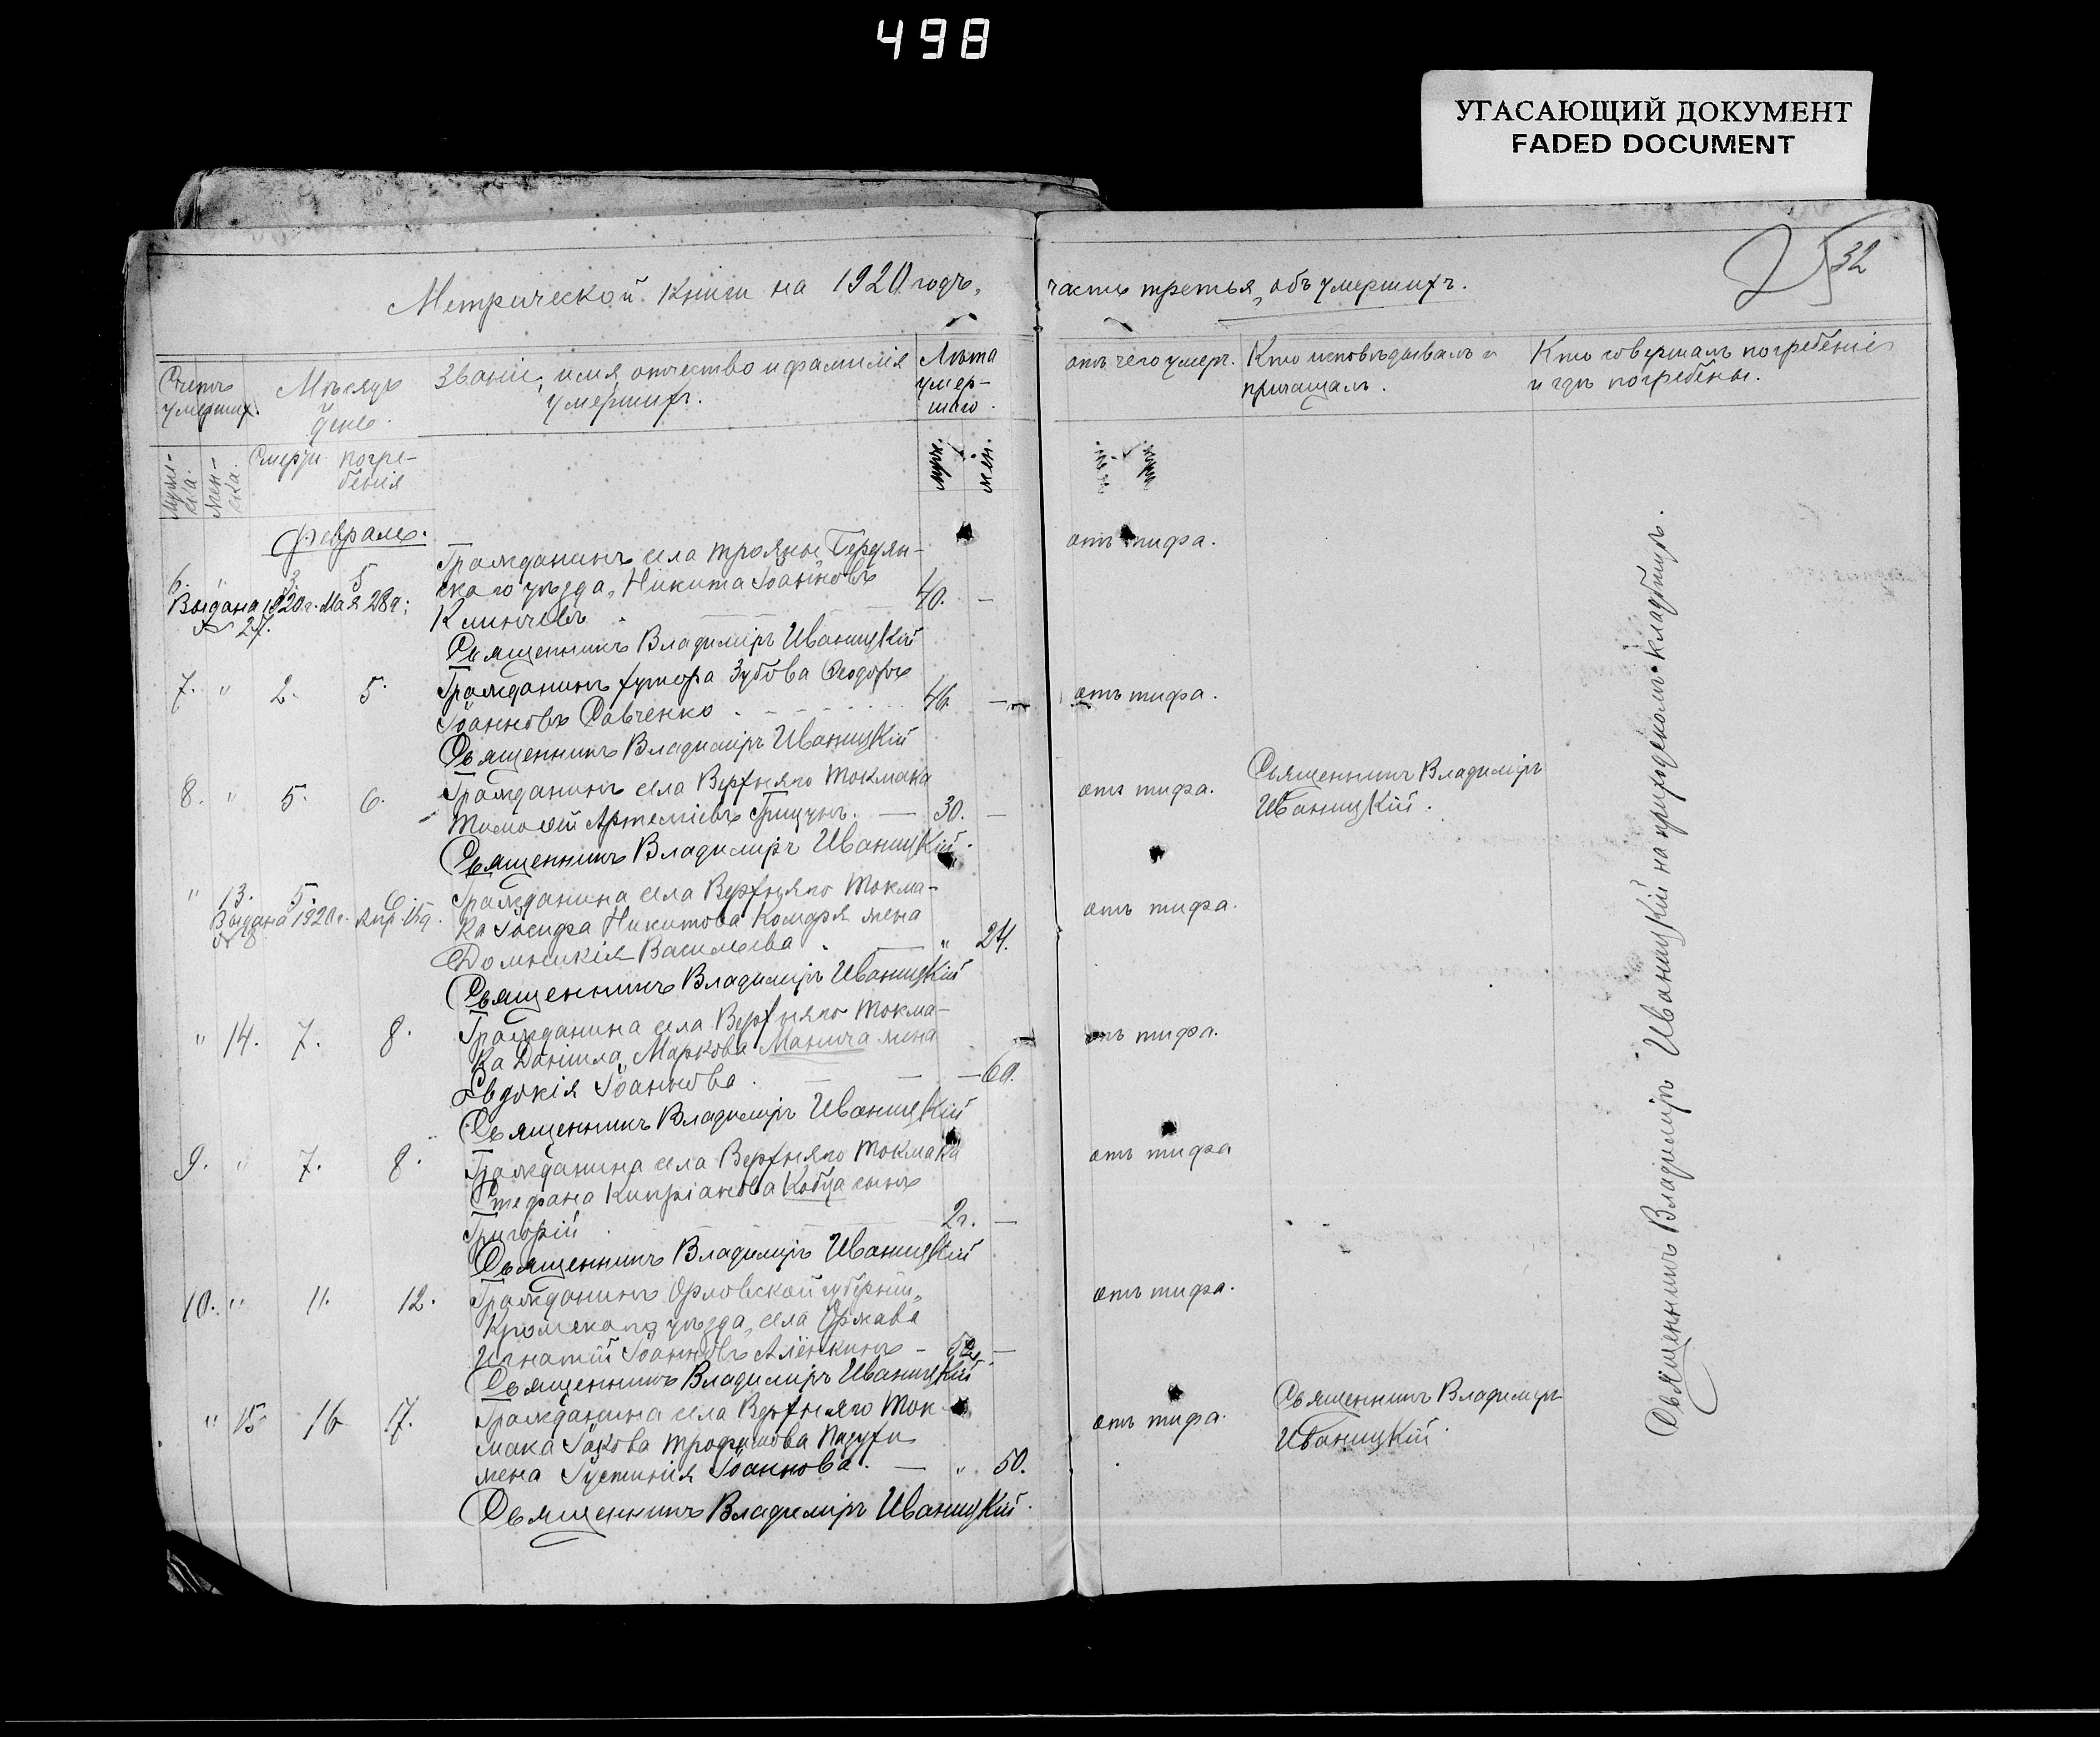 498
УГАСАЮЩИЙ ДОКУМЕНТ
FADED DOCUMENT
32
Метрической книги на 1920 годъ, часть третья, объ умершихъ.
Счетъ умершихъ.
Мѣсяцъ и день.
Званіе, имя, отчество и фамилія умершихъ.
Лѣта умер-
шаго.
отъ чего умеръ.
Кто исповѣдывалъ и
причащалъ.
Кто совершалъ погребеніе
и гдѣ погребены.
Муже-
ска.
Жен-
ска.
Смерти
погре-
бенія
муж.
жен.
Февраль.
Гражданинъ села Трояны Бердян-
6. " 3. 5 скаго уѣзда, Никита Іоанновъ 40. — отъ тифа.
Выдана 1920 г. Мая 28 д; № 27.
Климовъ
Священникъ Владиміръ Иваницкій
7. " 2. 5. Гражданинъ хутора Зубова Ѳеодоръ
Іоанновъ Савченко 46. — отъ тифа.
Священникъ Владиміръ Иваницкій
8. " 5. 6. Гражданинъ села Верхняго Токмака
Тимоѳей Артеміевъ Грицунъ. — 30. — отъ тифа.
Священникъ Владиміръ
Иваницкій.
Священникъ Владиміръ Иваницкій.
" 13. 5. 6. Гражданина села Верхняго Токма-
Выдана 1920 г. Апр. 15 д. № 8
ка Іосифа Никитова жена
Домникія Васильева — " 24. отъ тифа.
Священникъ Владиміръ Иваницкій
" 14. 7. 8. Гражданина села Верхняго Токма-
ка Даніила Маркова Манича жена
Евдокія Іоаннова. — — — 60. отъ тифа.
Священникъ Владиміръ Иваницкій
9. " 7. 8. Гражданина села Верхняго Токмака
Стефана Кипріанова Кобца сынъ
Григорій 2 г. — отъ тифа
Священникъ Владиміръ Иваницкій
10. " 11. 12. Гражданинъ Орловской губерніи,
Кромскаго уѣзда, села Ржава
Игнатій Іоанновъ Аленкинъ — — отъ тифа.
Священникъ Владиміръ Иваницкій
" 15 16 17. Гражданина села Верхняго Ток-
мака Іакова Трофимова
жена Іустинія Іоаннова. — " 50. отъ тифа.
Священникъ Владиміръ
Иваницкій.
Священникъ Владиміръ Иваницкій.
Священникъ Владиміръ Иваницкій на приходскомъ кладбищѣ.